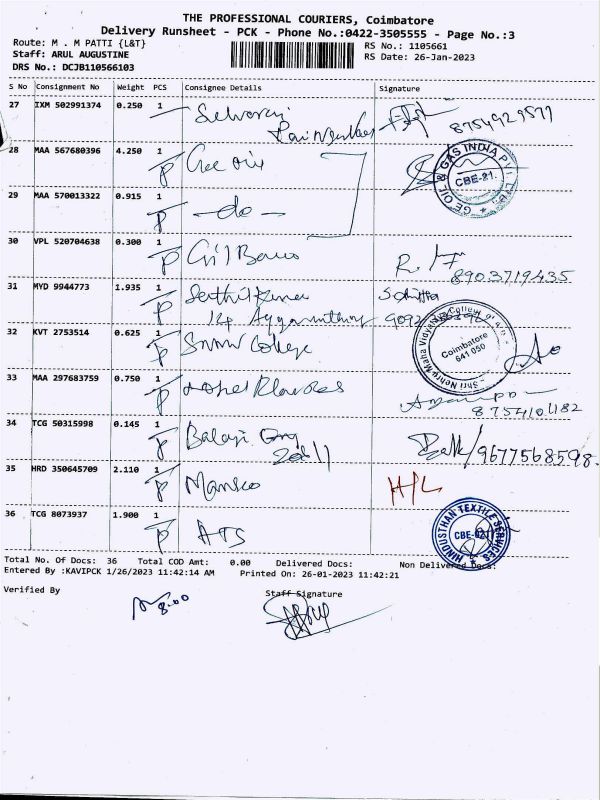 THE PROFESSIONAL COURIERS, Coimbatore
Delivery Runsheet - PCK - Phone No.:0422-3505555 - Page No.:3
Route: M . M PATTI {L&T}
RS No.: 1105661
Staff: ARUL AUGUSTINE
RS Date: 26-Jan-2023
DRS No.: DCJB110566103
S No Consignment No Weight PCS Consignee Details Signature
27 IXM 502991374 0.250 1 Selvaraj
8754929577
28 MAA 567680396 4.250 1 Gee oil
GE OIL & GAS INDIA PVT. LTD.
CBE-21.
29 MAA 570013322 0.915 1 - do -
30 VPL 520704638 0.300 1
8903719435
31 MYD 9944773 1.935 1 Senthil Kumar
14
32 KVT 2753514 0.625 1 SNMV College
Shri Nehru Maha Vidyalaya College of Arts
Coimbatore
641 050
33 MAA 297683759 0.750 1
34 TCG 50315998 0.145 1 Balaji
9677568598.
35 HRD 350645709 2.110 1 H/L
36 TCG 8073937 1.900 1 ATS
HINDUSTHAN TEXTILE SERVICES
CBE-021
Total No. Of Docs: 36 Total COD Amt: 0.00 Delivered Docs: Non Delivered Docs:
Entered By :KAVIPCK 1/26/2023 11:42:14 AM Printed On: 26-01-2023 11:42:21
Verified By
Staff Signature
8.00